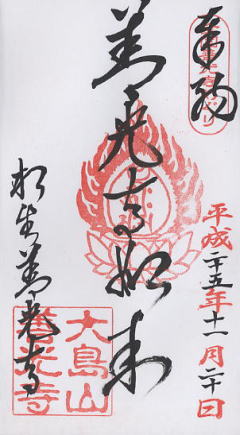 奉拝
善光寺如来
平成二十五年十一月二十日
生善光寺
大島山
善光寺